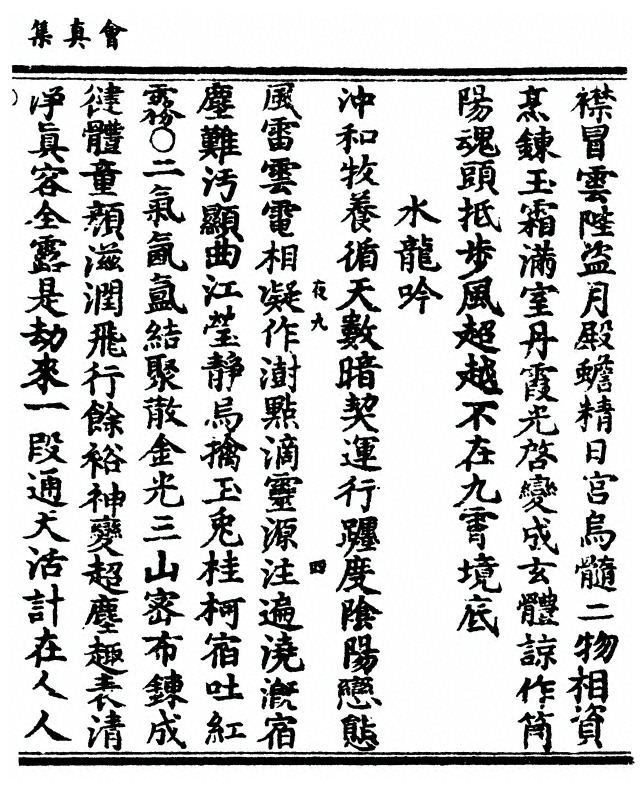 會真集
襟冒雲陛盜月殿蟾精日宮烏髓二物相資
烹鍊玉霜滿室丹霞光啓變成玄體諒作箇
陽魂頭抵步風超越不在九霄境底
水龍吟
沖和牧養循天數暗契運行躔度陰陽戀態
夜九
四
風雷雲電相凝作澍點滴靈源注遍澆溉宿
塵難汚顯曲江瑩靜烏擒玉兎桂柯宿吐紅
霧○二氣氤氳結聚散金光三山密布鍊成
健體童顏滋潤飛行餘裕神變超塵趣表清
淨眞容全露是劫來一段通天活計在人人